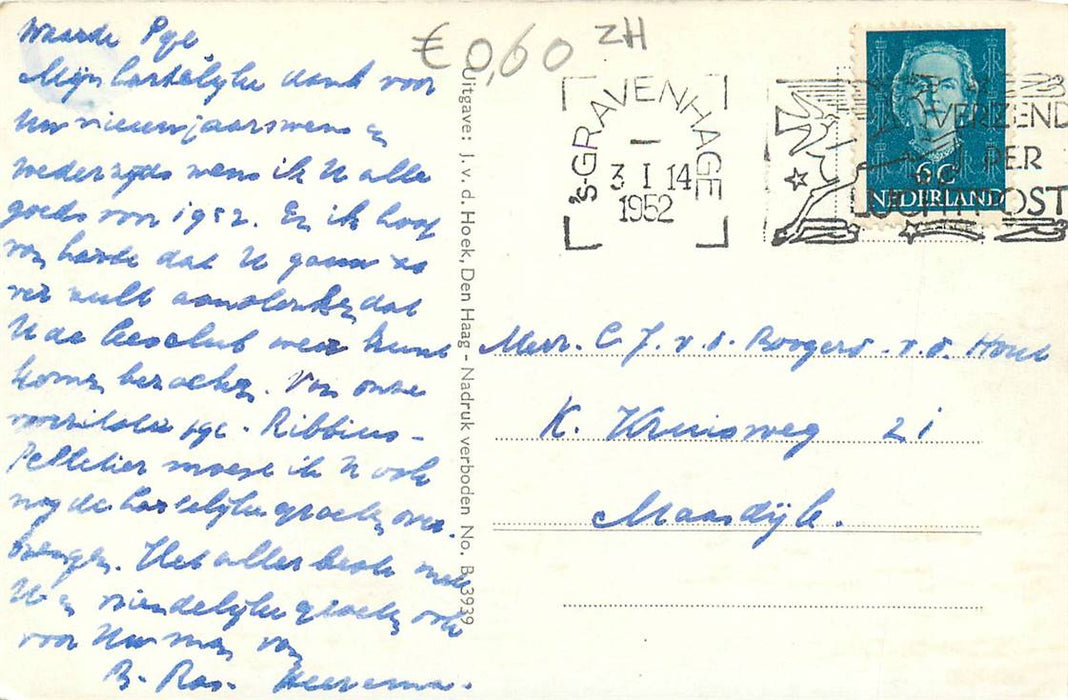 Waarde Pge.
Mijn hartelijke dank voor
Uw nieuwjaarswens en
wederzijds wens ik U alle
goeds voor 1952. En ik hoop
van harte dat U gauw zo
ver zult aansterken dat
U de Leesclub weer kunt
komen bezoeken. Van onze
voorzitster pge. Ribbius-
Pelletier moest ik U ook
nog de hartelijke groeten over
brengen. Het allerbeste met
U en vriendelijke groeten ook
voor Uw man van
B. Ras. Heerema.
€ 0,60 ZH
Uitgave: J. v. d. Hoek, Den Haag - Nadruk verboden No. B 3939
's-GRAVENHAGE
3 I 14
1952
VERZEND
PER
LUCHTPOST
6c
NEDERLAND
Mevr. C. J. v. d. Boogerd. v. d. Hout
K. Kruisweg 21
Maasdijk.